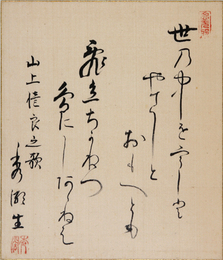 世乃中をうしと
やさしと
おもへとも
飛立ちかねつ
鳥にしあらねは
山上憶良之歌
秀
生